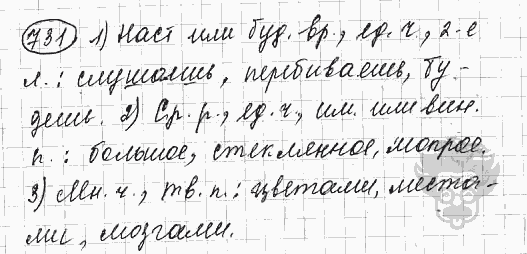 731 1) Наст или буд. вр., ед. ч., 2-е
л.: слушаешь, перебиваешь, бу-
дешь. 2) Ср. р., ед. ч., им. или вин.
п.: большое, стеклянное, мокрое.
3) Мн. ч., тв. п.: цветами, места-
ми, мозгами.